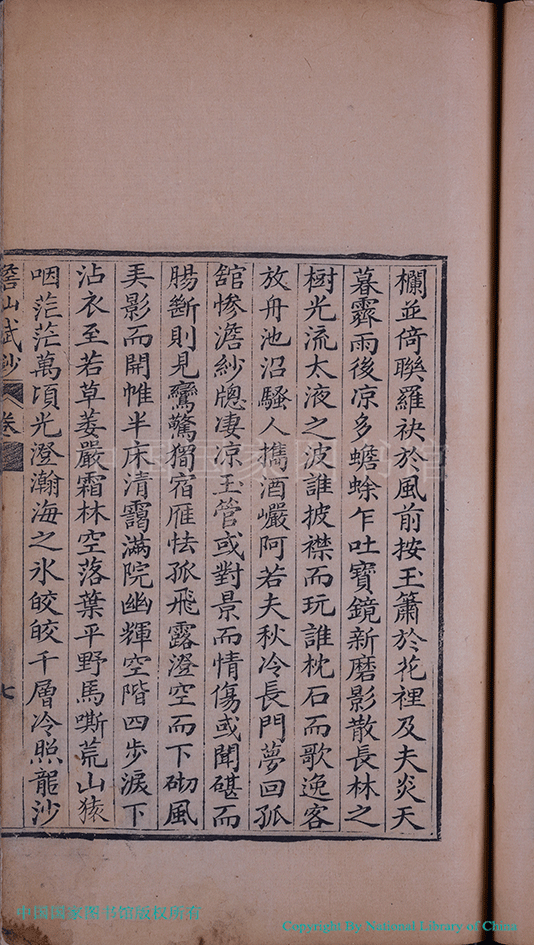 欄並倚聯羅袂於風前按玉簫於花裡及夫炎天
暮霽雨後凉多蟾蜍乍吐寶鏡新磨影散長林之
樹光流太液之波誰披襟而玩誰枕石而歌逸客
放舟池沼騷人攜酒巖阿若夫秋冷長門夢回孤
舘慘澹紗牕凄凉玉管或對景而情傷或聞碪而
腸斷則見鸞驚獨宿雁怯孤飛露澄空而下砌風
弄影而開帷半床清靄滿院幽輝空階四步淚下
沾衣至若草萎嚴霜林空落葉平野馬嘶荒山猿
咽茫茫萬頃光澄瀚海之氷皎皎千層冷照龍沙
山賦鈔 卷 七
中国国家图书馆版权所有
Copyright By National Library of China